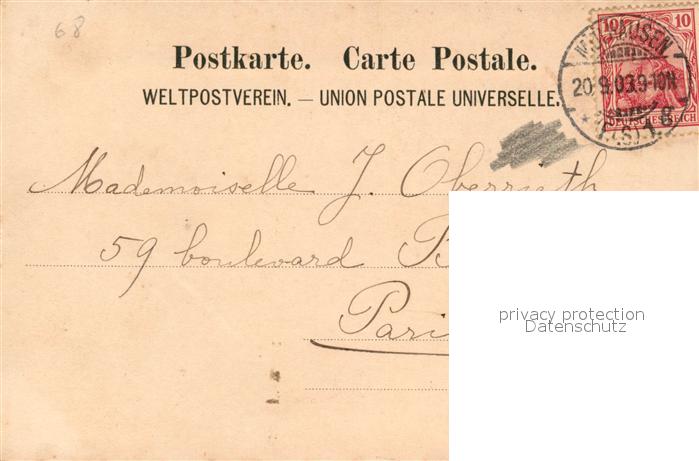 68
Postkarte. Carte Postale.
WELTPOSTVEREIN. — UNION POSTALE UNIVERSELLE.
10 10
DEUTSCHES REICH
20.9.03.9-10N
Mademoiselle J.
59 boulevard
Pari
privacy protection
Datenschutz